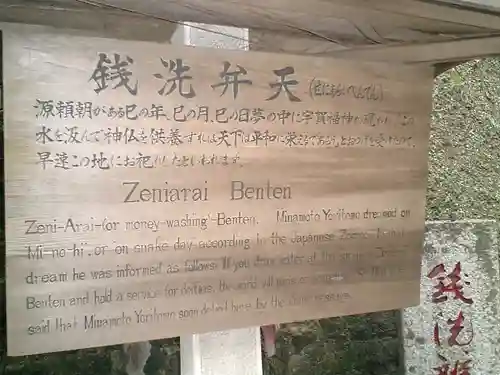 銭洗弁天(ぜにあらいべんてん)
源頼朝がある巳の年、巳の月、巳の日夢の中に宇賀福神が現われ「この
水を汲んで神仏を供養すれば天下は平和に栄えるであろう」とおつげを受けたので、
早速この地にお祀りしたといわれます。
Zeniarai Benten
Zeni-Arai-(or money-washing)-Benten. Minamoto Yoritomo dreamed on
Mi-no-hi", or on snake day according to the Japanese
dream he was informed as follows: If you draw water at the
Benten and hold a service for deities, the world will
said that Minamoto Yoritomo soon deified here by the
銭洗